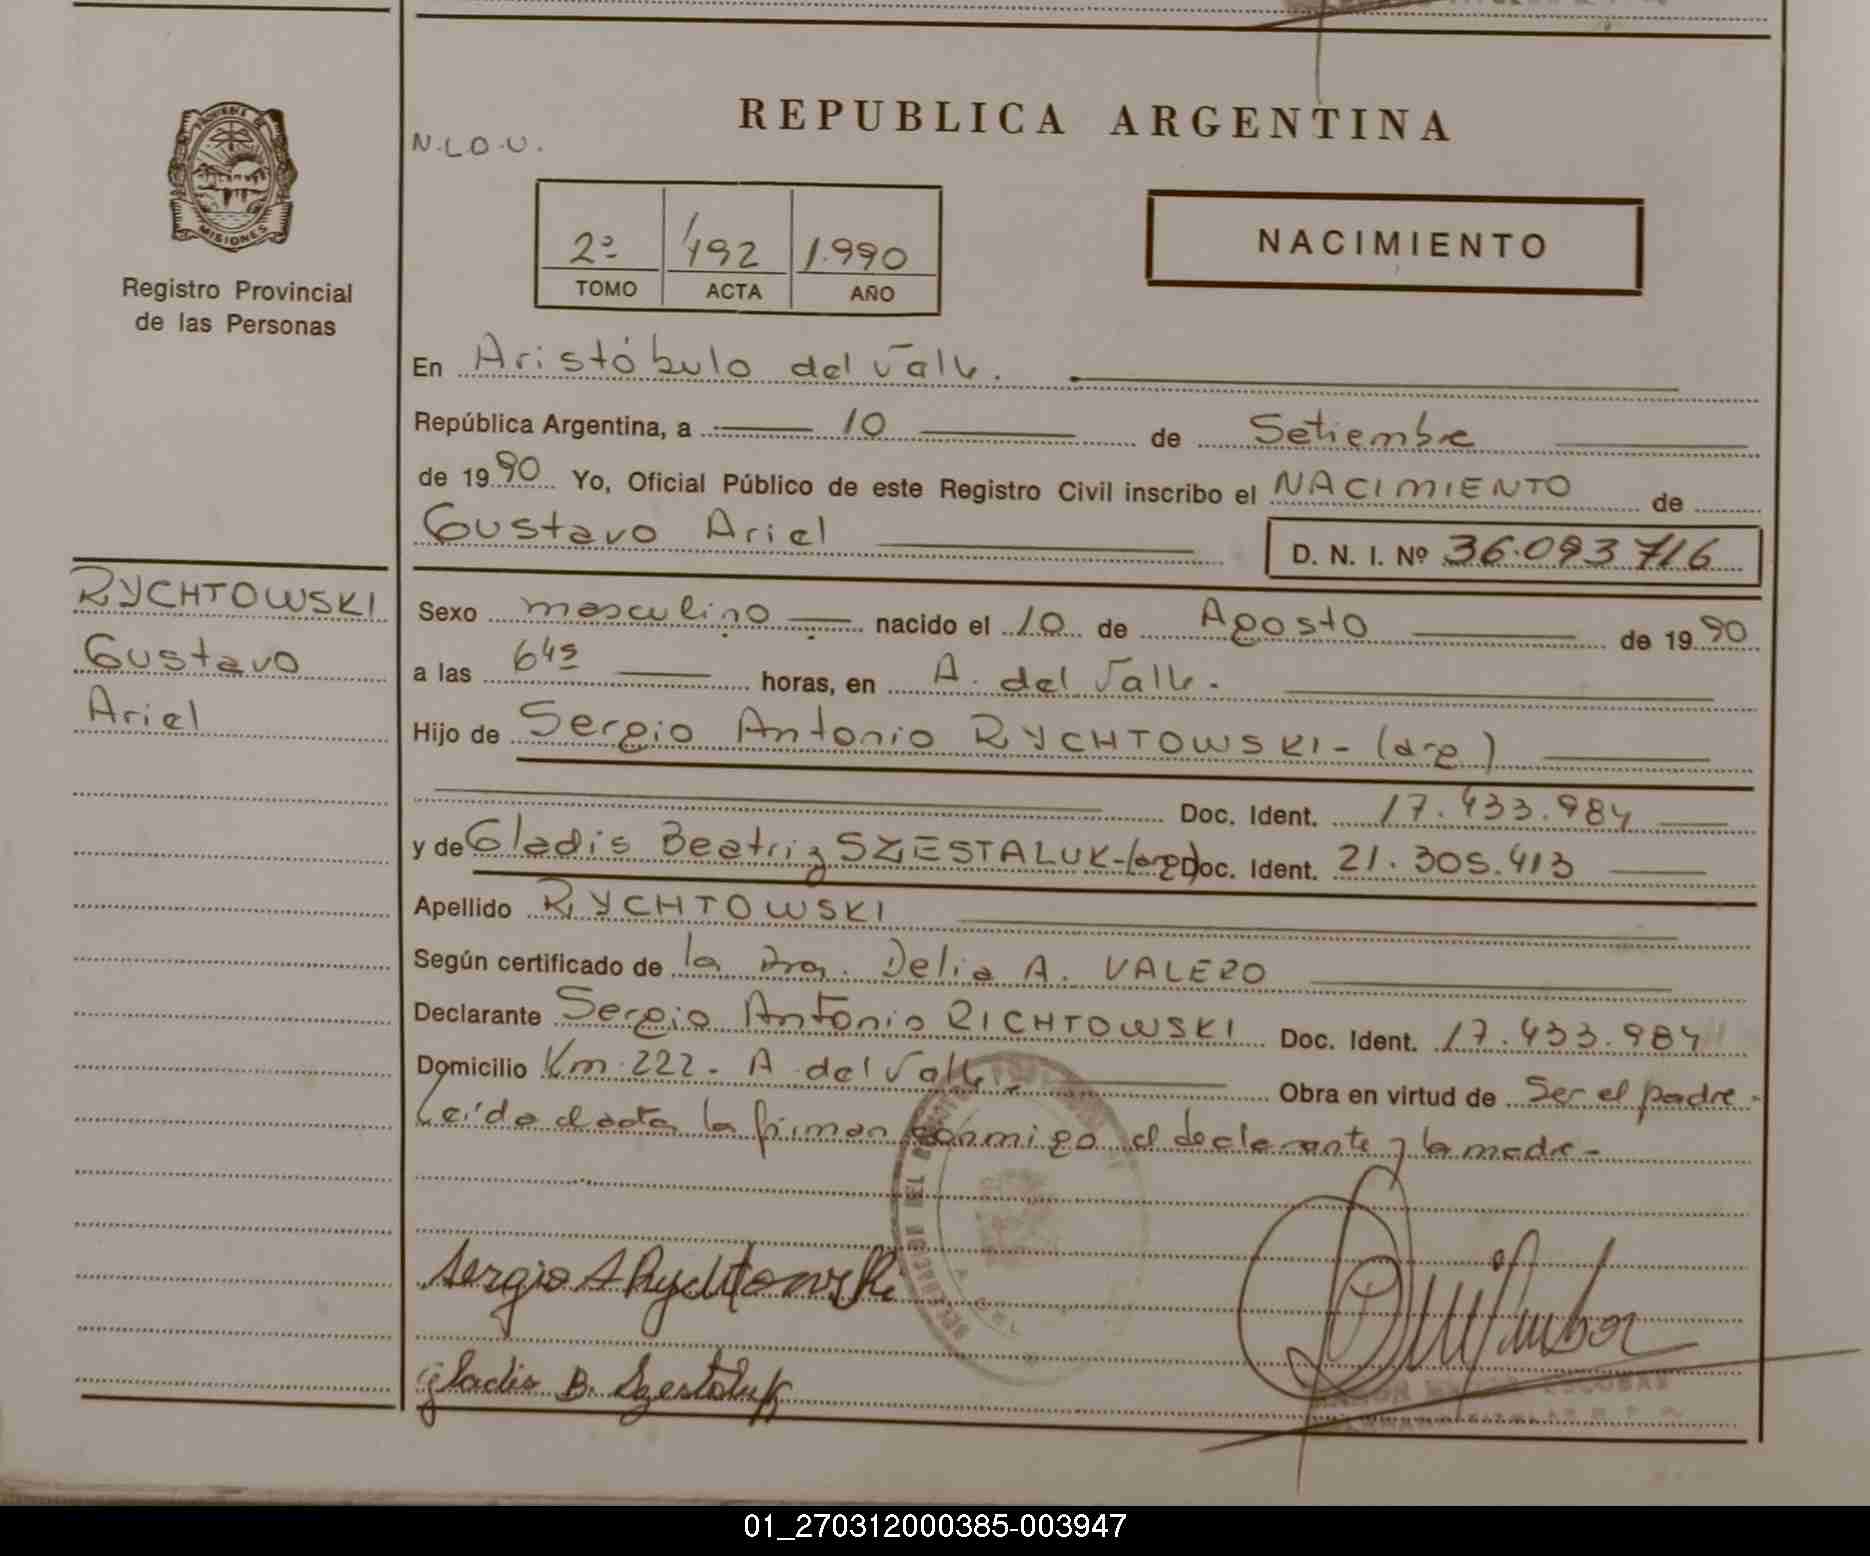 REPUBLICA ARGENTINA
N.L.O.U.
MISIONES
Registro Provincial
de las Personas
2º 492 1.990
TOMO ACTA AÑO
NACIMIENTO
En Aristóbulo del Valle.
República Argentina, a 10 de Setiembre
de 1990 Yo, Oficial Público de este Registro Civil inscribo el NACIMIENTO de
Gustavo Ariel D. N. I. Nº 36.093716
RYCHTOWSKI
Gustavo
Ariel
Sexo masculino nacido el 10 de Agosto de 1990
a las 645 horas, en A. del Valle.
Hijo de Sergio Antonio RYCHTOWSKI- (arg)
Doc. Ident. 17.433.984
y de Gladis Beatriz SZESTALUK-(arg) Doc. Ident. 21.305.413
Apellido RYCHTOWSKI
Según certificado de la Dra. Delia A. VALERO
Declarante Sergio Antonio RICHTOWSKI Doc. Ident. 17.433.984
Domicilio Km. 222 - A. del Valle. Obra en virtud de Ser el padre-
Leída el acta la firman conmigo el declarante y la madre-
Sergio A Rychtowski
Gladis B. Szestaluk
01_270312000385-003947